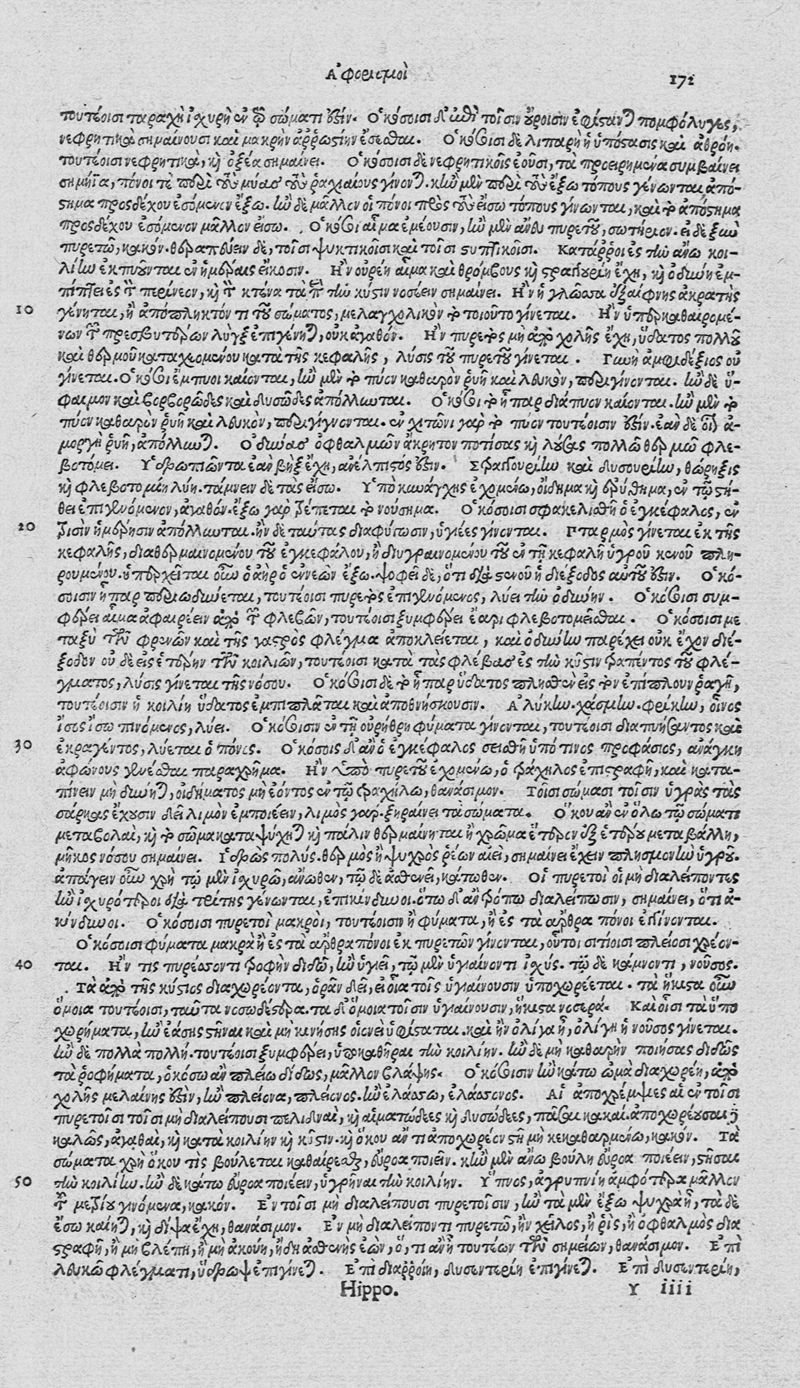 Ἀφορισμοὶ 171
τουτέοισι ταραχὴ ἰχυρὴ ἐν τῷ σώματι ἐστίν. Ὁκόσοισι δ' ἐπὶ τοῖσιν οὔροισιν ἐφίσανται πομφόλυγες,
νεφρητικὰ σημαίνουσι καὶ μακρὴν ἀῤῥωστίην ἔσεσθαι. Ὁκόσοισι δὲ λιπαρὴ ἡ ὑπόστασις καὶ ἀθρόη.
τουτέοισι νεφρητικὰ, καὶ ὀξέα σημαίνει. Ὁκόσοισι δὲ νεφρητικοῖς ἐοῦσι, τὰ προειρημένα συμβαίνει
σημήϊα, πόνοι τὲ περὶ τοὺς μύας τοὺς ῥαχιαίους γίνονται. κἢν μὲν περὶ τοὺς ἔξω τόπους γίνωνται, ἀπό-
στημα προσδέχου ἐσόμενον ἔξω. ἢν δὲ μᾶλλον οἱ πόνοι πρὸς τοὺς εἴσω τόπους γίνωνται, καὶ τὸ ἀπόστημα
προσδέχου ἐσόμενον μᾶλλον εἴσω. Ὁκόσοι αἷμα ἐμέουσιν, ἢν μὲν ἄνευ πυρετοῦ, σωτήριον. εἰ δὲ ξὺν
πυρετῷ, κακόν. θεραπεύειν δὲ, τοῖσι ψυκτικοῖσι καὶ τοῖσι στυπτικοῖσι. Κατάῤῥοι ἐς τὴν ἄνω κοι-
λίην ἐκπυοῦνται ἐν ἡμέραις εἴκοσιν. Ἢν οὐρέῃ αἷμα καὶ θρόμβους καὶ στραγγουρίη ἔχῃ, καὶ ὀδύνη ἐμ-
πίπτει ἐς τὸν περίνεον, καὶ τὸν κτένα τὰ περὶ τὴν κύστιν νοσέειν σημαίνει. Ἢν ἡ γλῶσσα ἐξαίφνης ἀκρατὴς
10 γένηται, ἢ ἀπόπληκτόν τι τοῦ σώματος, μελαγχολικὸν τὸ τοιοῦτο γίνεται. Ἢν ὑπερκαθαιρομέ-
νων τῶν πρεσβυτέρων λὺγξ ἐπιγένηται, οὐκ ἀγαθόν. Ἢν πυρετὸς μὴ ἀπὸ χολῆς ἔχῃ, ὕδατος πολλοῦ
καὶ θερμοῦ καταχεομένου κατὰ τῆς κεφαλῆς, λύσις τοῦ πυρετοῦ γίνεται. Γυνὴ ἀμφιδέξιος οὐ
γίνεται. Ὁκόσοι ἔμπυοι καίονται, ἢν μὲν τὸ πύον καθαρὸν ῥυῇ καὶ λευκὸν, περιγίνονται. ἢν δὲ ὕ-
φαιμον καὶ βορβορῶδες καὶ δυσῶδες ἀπόλλυνται. Ὁκόσοι τὸ ἧπαρ διάπυον καίονται. ἢν μὲν τὸ
πύον καθαρὸν ῥυῇ καὶ λευκὸν, περιγίγνονται. ἐν χιτῶνι γὰρ τὸ πύον τουτέοισιν ἐστίν. ἐὰν δὲ οἷον ἀ-
μόργη ῥυῇ, ἀπόλλυνται. Ὀδύνας ὀφθαλμῶν ἄκρητον ποτίσας καὶ λούσας πολλῷ θερμῷ φλε-
βοτόμει. Ὑδρωπιῶντα ἐὰν βὴξ ἔχῃ, ἀνέλπιστός ἐστιν. Στραγγουρίην καὶ δυσουρίην, θώρηξις
καὶ φλεβοτομίη λύη. τάμνειν δὲ τὰς εἴσω. Ὑπὸ κυνάγχης ἐχομένῳ, οἴδημα καὶ ἐρύθημα, ἐν τῷ στή-
θει ἐπιγενόμενον, ἀγαθόν. ἔξω γὰρ τρέπεται τὸ νούσημα. Ὁκόσοισι σφακελισθῇ ὁ ἐγκέφαλος, ἐν
20 τρισὶν ἡμέρῃσιν ἀπόλλυνται. ἢν δὲ ταύτας διαφύγωσιν, ὑγιέες γίνονται. Πταρμὸς γίνεται ἐκ τῆς
κεφαλῆς, διαθερμαινομένου τοῦ ἐγκεφάλου, ἢ διυγραινομένου τοῦ ἐν τῇ κεφαλῇ ὑγροῦ κενοῦ πλη-
ρουμένου. ὑπερχεῖται οὖν ὁ ἀὴρ ὁ ἐνεὼν ἔξω. ψοφεῖ δὲ, ὅτι διὰ στενοῦ ἡ διέξοδος αὐτοῦ ἐστιν. Ὁκό-
σοισιν ἧπαρ περιωδυνᾶται, τουτέοισι πυρετὸς ἐπιγενόμενος, λύει τὴν ὀδύνην. Ὁκόσοισι συμ-
φέρει αἷμα ἀφαιρέειν ἀπὸ τῶν φλεβῶν, τουτέοισι ξυμφέρει ἔαρι φλεβοτομέεσθαι. Ὁκόσοισι με
ταξὺ τῶν φρενῶν καὶ τῆς γαστρὸς φλέγμα ἀποκλείεται, καὶ ὀδύνην παρέχει οὐκ ἔχον διέ-
ξοδον οὐδὲ εἰς ἑτέρην τῶν κοιλιῶν, τουτέοισι κατὰ τὰς φλέβας ἐς τὴν κύστιν τραπέντος τοῦ φλέ-
γματος, λύσις γίνεται τῆς νόσου. Ὁκόσοισι δὲ τὸ ἧπαρ ὕδατος πλησθὲν εἰς τὸν ἐπίπλουν ῥαγῇ,
τουτέοισιν ἡ κοιλίη ὕδατος ἐμπίπλαται καὶ ἀποθνήσκουσιν. Ἀλύκην, χάσμην, φρίκην, οἶνος
ἴσος ἴσῳ πινόμενος, λύει. Ὁκόσοισιν ἐν τῇ οὐρήθρῃ φύματα γίνονται, τουτέοισι διαπυήσαντος καὶ
30 ἐκραγέντος, λύεται ὁ πόνος. Ὁκόσοις δ' ἂν ὁ ἐγκέφαλος σεισθῇ ὑπό τινος προφάσιος, ἀνάγκη
ἀφώνους γενέσθαι παραχρῆμα. Ἢν ὑπὸ πυρετοῦ ἐχομένῳ, ὁ τράχηλος ἐπιστραφῇ, καὶ κατα-
πίνειν μὴ δύνηται, οἰδήματος μὴ ἐόντος ἐν τῷ τραχήλῳ, θανάσιμον. Τοῖσι σώμασι τοῖσιν ὑγρὰς τὰς
σάρκας ἔχουσιν δεῖ λιμὸν ἐμποιέειν, λιμὸς γὰρ ξηραίνει τὰ σώματα. Ὅκου ἂν ἐν ὅλῳ τῷ σώματι
μεταβολαὶ, καὶ τὸ σῶμα καταψύχηται καὶ πάλιν θερμαίνηται ἢ χρῶμα ἕτερον ἐξ ἑτέρου μεταβάλλῃ,
μῆκος νόσου σημαίνει. Ἱδρὼς πολὺς. θερμὸς ἢ ψυχρὸς ῥέων αἰεὶ, σημαίνει ἔχειν πλησμονὴν ὑγροῦ.
ἀπάγειν οὖν χρὴ τῷ μὲν ἰχυρῷ, ἄνωθεν, τῷ δὲ ἀσθενεῖ, κάτωθεν. Οἱ πυρετοὶ οἱ μὴ διαλείποντες
ἢν ἰχυρότεροι διὰ τρίτης γένωνται, ἐπικίνδυνοι. ὅτῳ δ' ἂν τρόπῳ διαλείπωσιν, σημαίνει, ὅτι ἀ-
κίνδυνοι. Ὁκόσοισι πυρετοὶ μακροὶ, τουτέοισιν ἢ φύματα, ἢ ἐς τὰ ἄρθρα πόνοι ἐγγίνονται.
Ὁκόσοισι φύματα μακρὰ ἢ ἐς τὰ ἄρθρα πόνοι ἐκ πυρετῶν γίνονται, οὗτοι σιτίοισι πλείοσι χρέον-
40 ται. Ἤν τις πυρέσσοντι τροφὴν διδῷ, ἣν ὑγιεῖ, τῷ μὲν ὑγιαίνοντι ἰχύς. τῷ δὲ κάμνοντι, νοῦσος.
Τὰ διὰ τῆς κύστιος διαχωρέοντα, ὁρᾶν δεῖ, εἰ οἷα τοῖς ὑγιαίνουσιν ὑποχωρέεται. τὰ ἥκιστα οὖν
ὅμοια τουτέοισι, ταῦτα νοσωδέστερα. τὰ δ' ὅμοια τοῖσιν ὑγιαίνουσιν, ἥκιστα νοσερά. Καὶ οἷσι τὰ ὑπο
χωρήματα, ἢν ἐάσῃς στῆναι καὶ μὴ κινήσῃς οἱονεὶ ὑφίσταται. καὶ ἢν ὀλίγα ᾖ, ὀλίγη ἡ νοῦσος γίνεται.
ἢν δὲ πολλὰ πολλή. τουτέοισι ξυμφέρει, ὑποκαθῆραι τὴν κοιλίην. ἢν δὲ μὴ καθαρὴν ποιήσας διδῷς
τὰ ῥοφήματα, ὁκόσῳ ἂν πλείω διδῷς, μᾶλλον βλάψῃς. Ὁκόσοισιν ἢν κάτω ὠμὰ διαχωρέῃ, ἀπὸ
χολῆς μελαίνης ἐστὶν, ἢν πλείονα, πλείονος. ἢν ἐλάσσω, ἐλάσσονος. Αἱ ἀποχρέμψιες αἱ ἐν τοῖσι
πυρετοῖσι τοῖσι μὴ διαλείπουσι πελιδναὶ, καὶ αἱματώδεες καὶ δυσώδεες, πᾶσαι κακαί. ἀποχωρέουσαι δὲ
καλῶς, ἀγαθαὶ, καὶ κατὰ κοιλίην καὶ κύστιν. καὶ ὅκου ἄν τι ἀποχωρέον στῇ μὴ κεκαθαρμένῳ, κακόν. Τὰ
σώματα χρὴ ὅκου τὶς βούλεται καθαίρεσθαι, εὔροα ποιέειν. κἢν μὲν ἄνω βούλῃ εὔροα ποιέειν, στῆσαι
50 τὴν κοιλίην. ἢν δὲ κάτω εὔροα ποιέειν, ὑγρῆναι τὴν κοιλίην. Ὕπνος, ἀγρυπνίη ἀμφότερα μᾶλλον
τοῦ μετρίου γινόμενα, κακόν. Ἐν τοῖσι μὴ διαλείπουσι πυρετοῖσιν, ἢν τὰ μὲν ἔξω ψυχρὰ ᾖ, τὰ δὲ
ἔσω καίηται, καὶ δίψα ἔχῃ, θανάσιμον. Ἐν μὴ διαλείποντι πυρετῷ, ἢν χεῖλος, ἢ ῥὶς, ἢ ὀφθαλμὸς δια
στραφῇ, ἢ μὴ βλέπῃ, ἢ μὴ ἀκούῃ, ἤδη ἀσθενὴς ἐὼν, ὅ, τι ἂν ᾖ τουτέων τῶν σημείων, θανάσιμον. Ἐπὶ
λευκῷ φλέγματι, ὕδρωψ ἐπιγίνεται. Ἐπὶ διαῤῥοίῃ, δυσεντερίη ἐπιγίνεται. Ἐπὶ δυσεντερίῃ,
Hippo. Y iiii